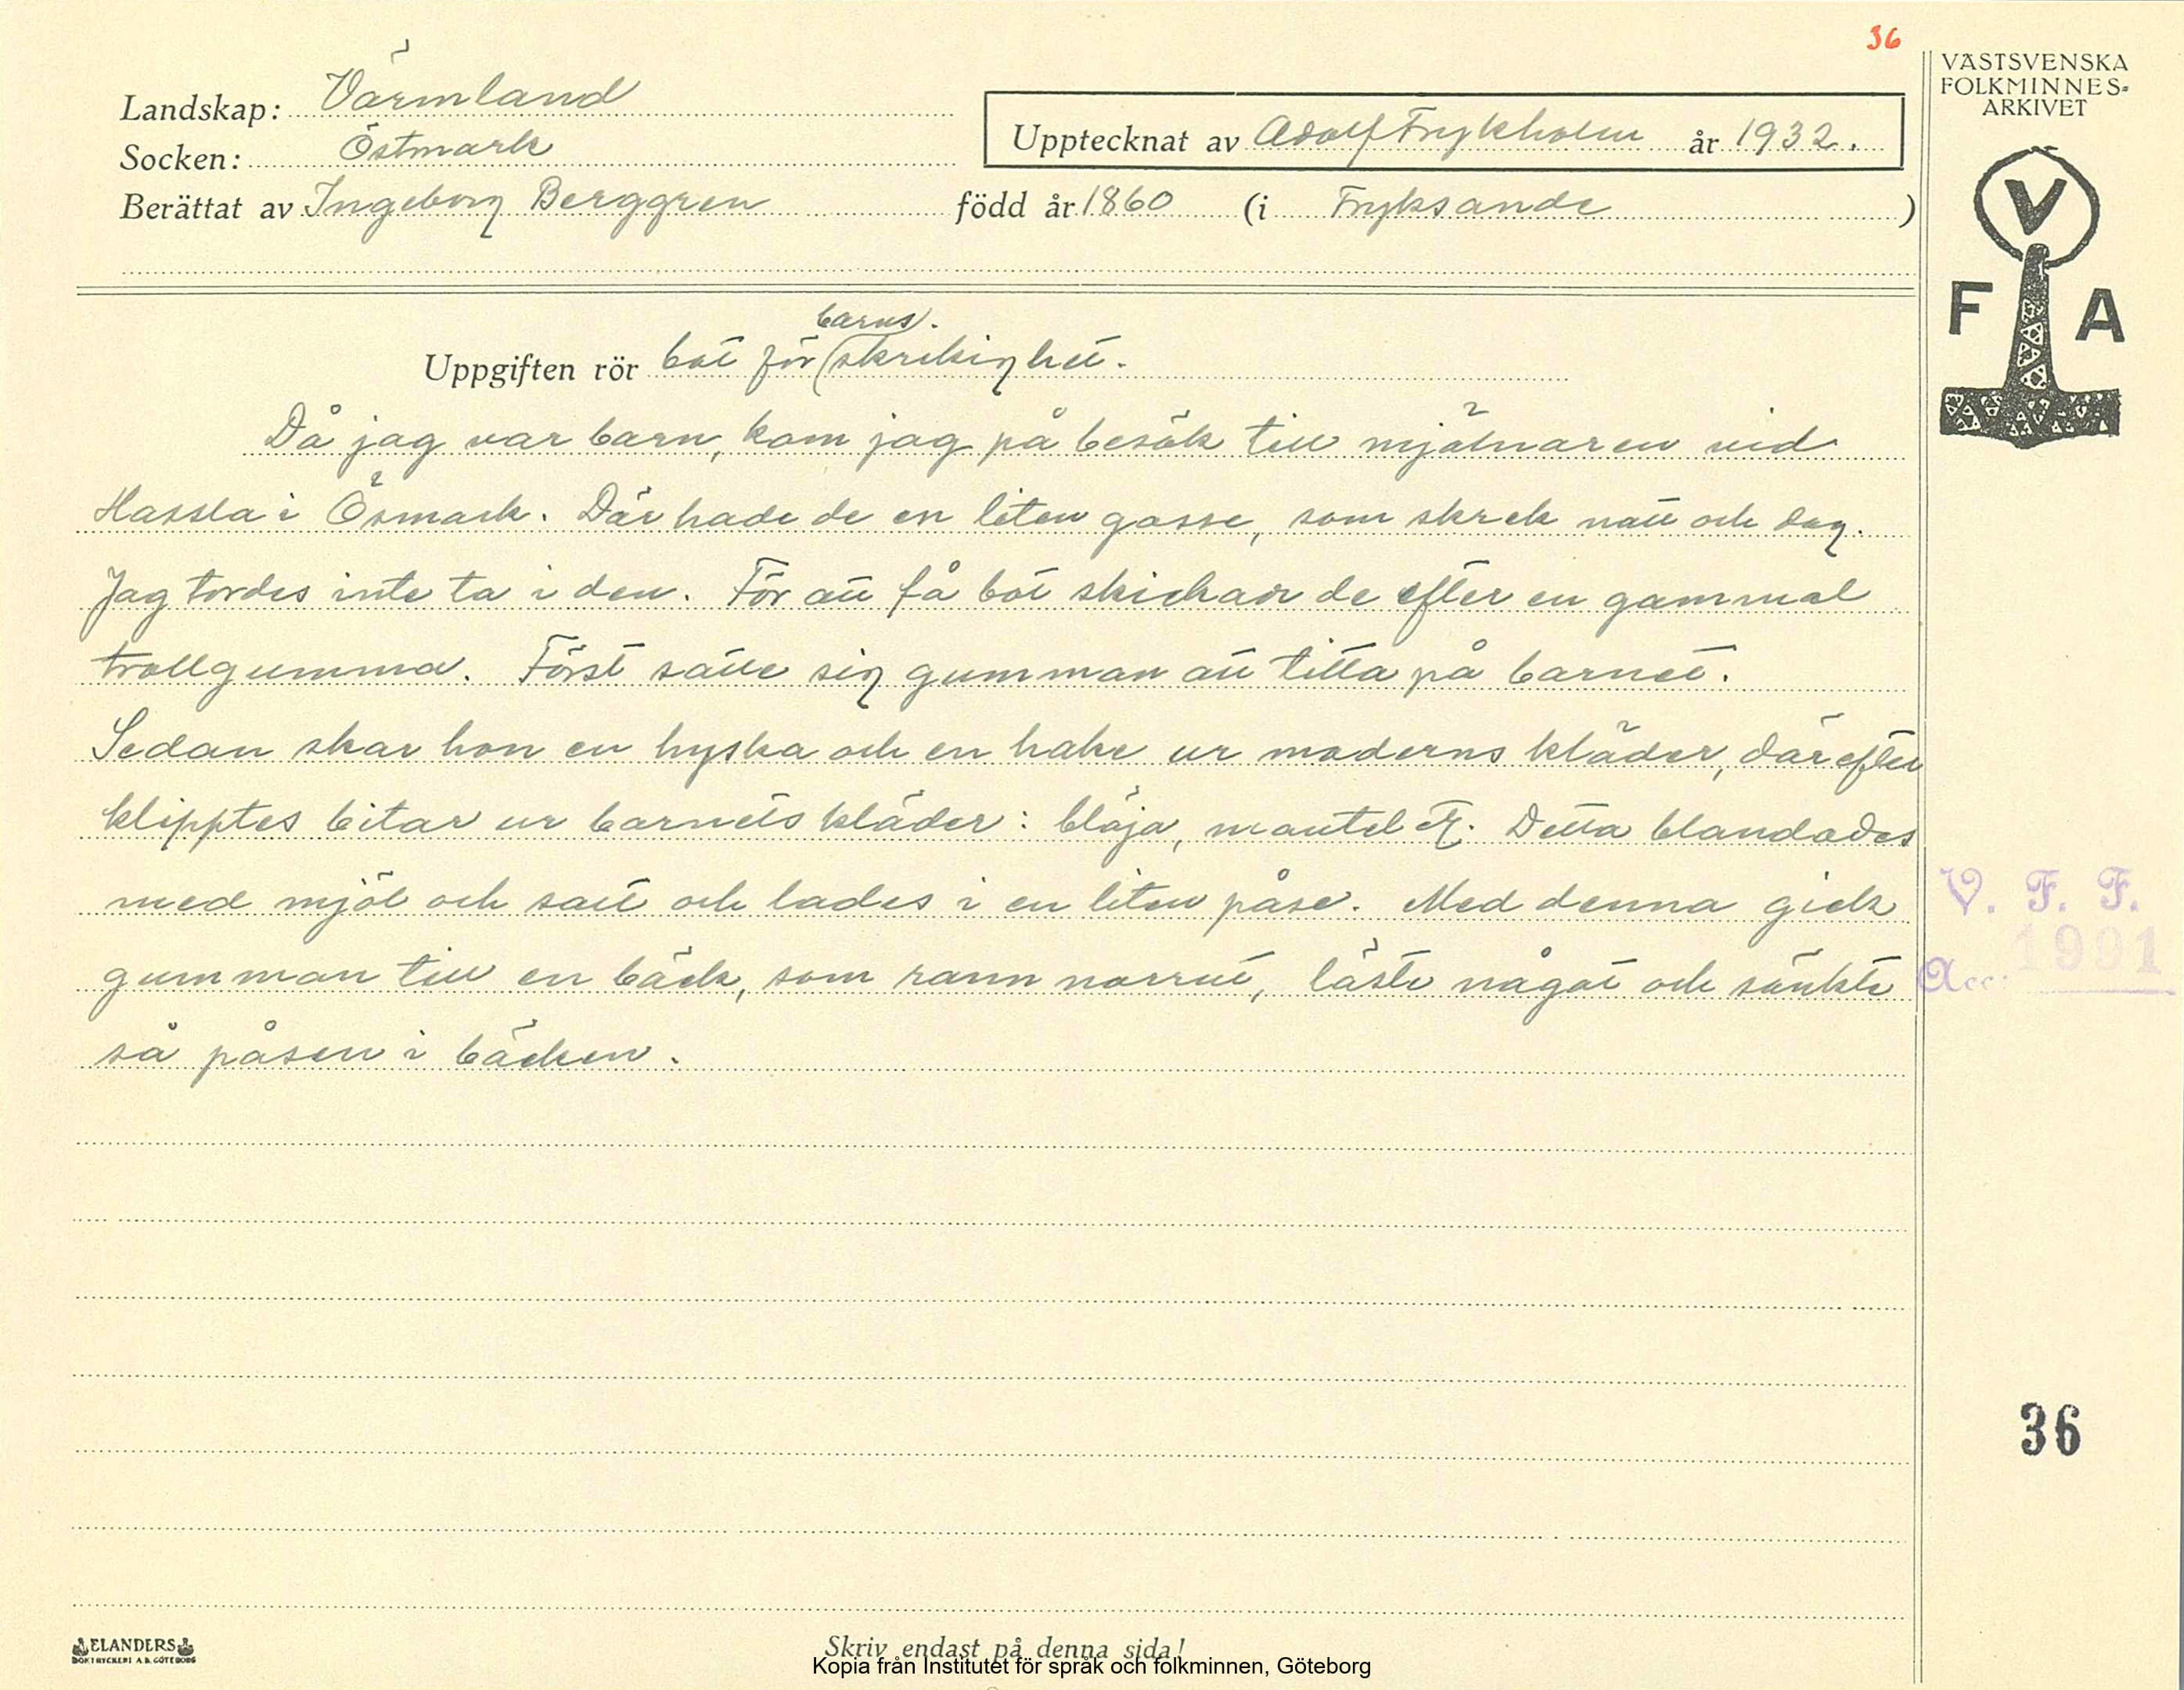 36
VÄSTSVENSKA
FOLKMINNES-
ARKIVET
Landskap: Värmland
Socken: Östmark
Upptecknat av Adolf Frykholm år 1932.
Berättat av Ingeborg Berggren född år 1860 (i Fryksande)
V
F A
barns.
Uppgiften rör bot för (skrikighet.
Då jag var barn, kom jag på besök till mjölnaren vid
Hassla i Ösmark. Där hade de en liten gosse, som skrek natt och dag.
Jag tordes inte ta i den. För att få bot skickar de efter en gammal
trollgumma. Först satte sig gumman att titta på barnet.
Sedan skar hon en hyska och en hake ur moderns kläder, därefter
klipptes bitar ur barnets kläder: blöja, mantel etc. Detta blandades
med mjöl och salt och lades i en liten påse. Med denna gick
gumman till en bäck, som rann norrut, läste något och sänkte
så påsen i bäcken.
V. F. F.
Acc: 1991
36
ELANDERS
BOKTRYCKERI A.B. GÖTEBORG
Skriv endast på denna sida!
Kopia från Institutet för språk och folkminnen, Göteborg